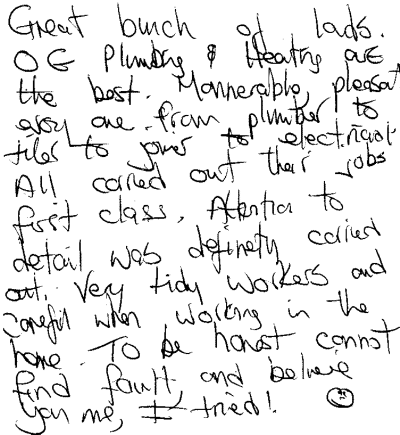 Great bunch of lads.
OG Plumbing & Heating are
the best. Mannerable, pleasat
every one. from plumber to
tiler to joiner to electrician
All carried out their jobs
first class. Attention to
detail was definety carried
out. Very tidy workers and
careful when working in the
home. To be honest cannot
find fault, and believe
you me, I tried!